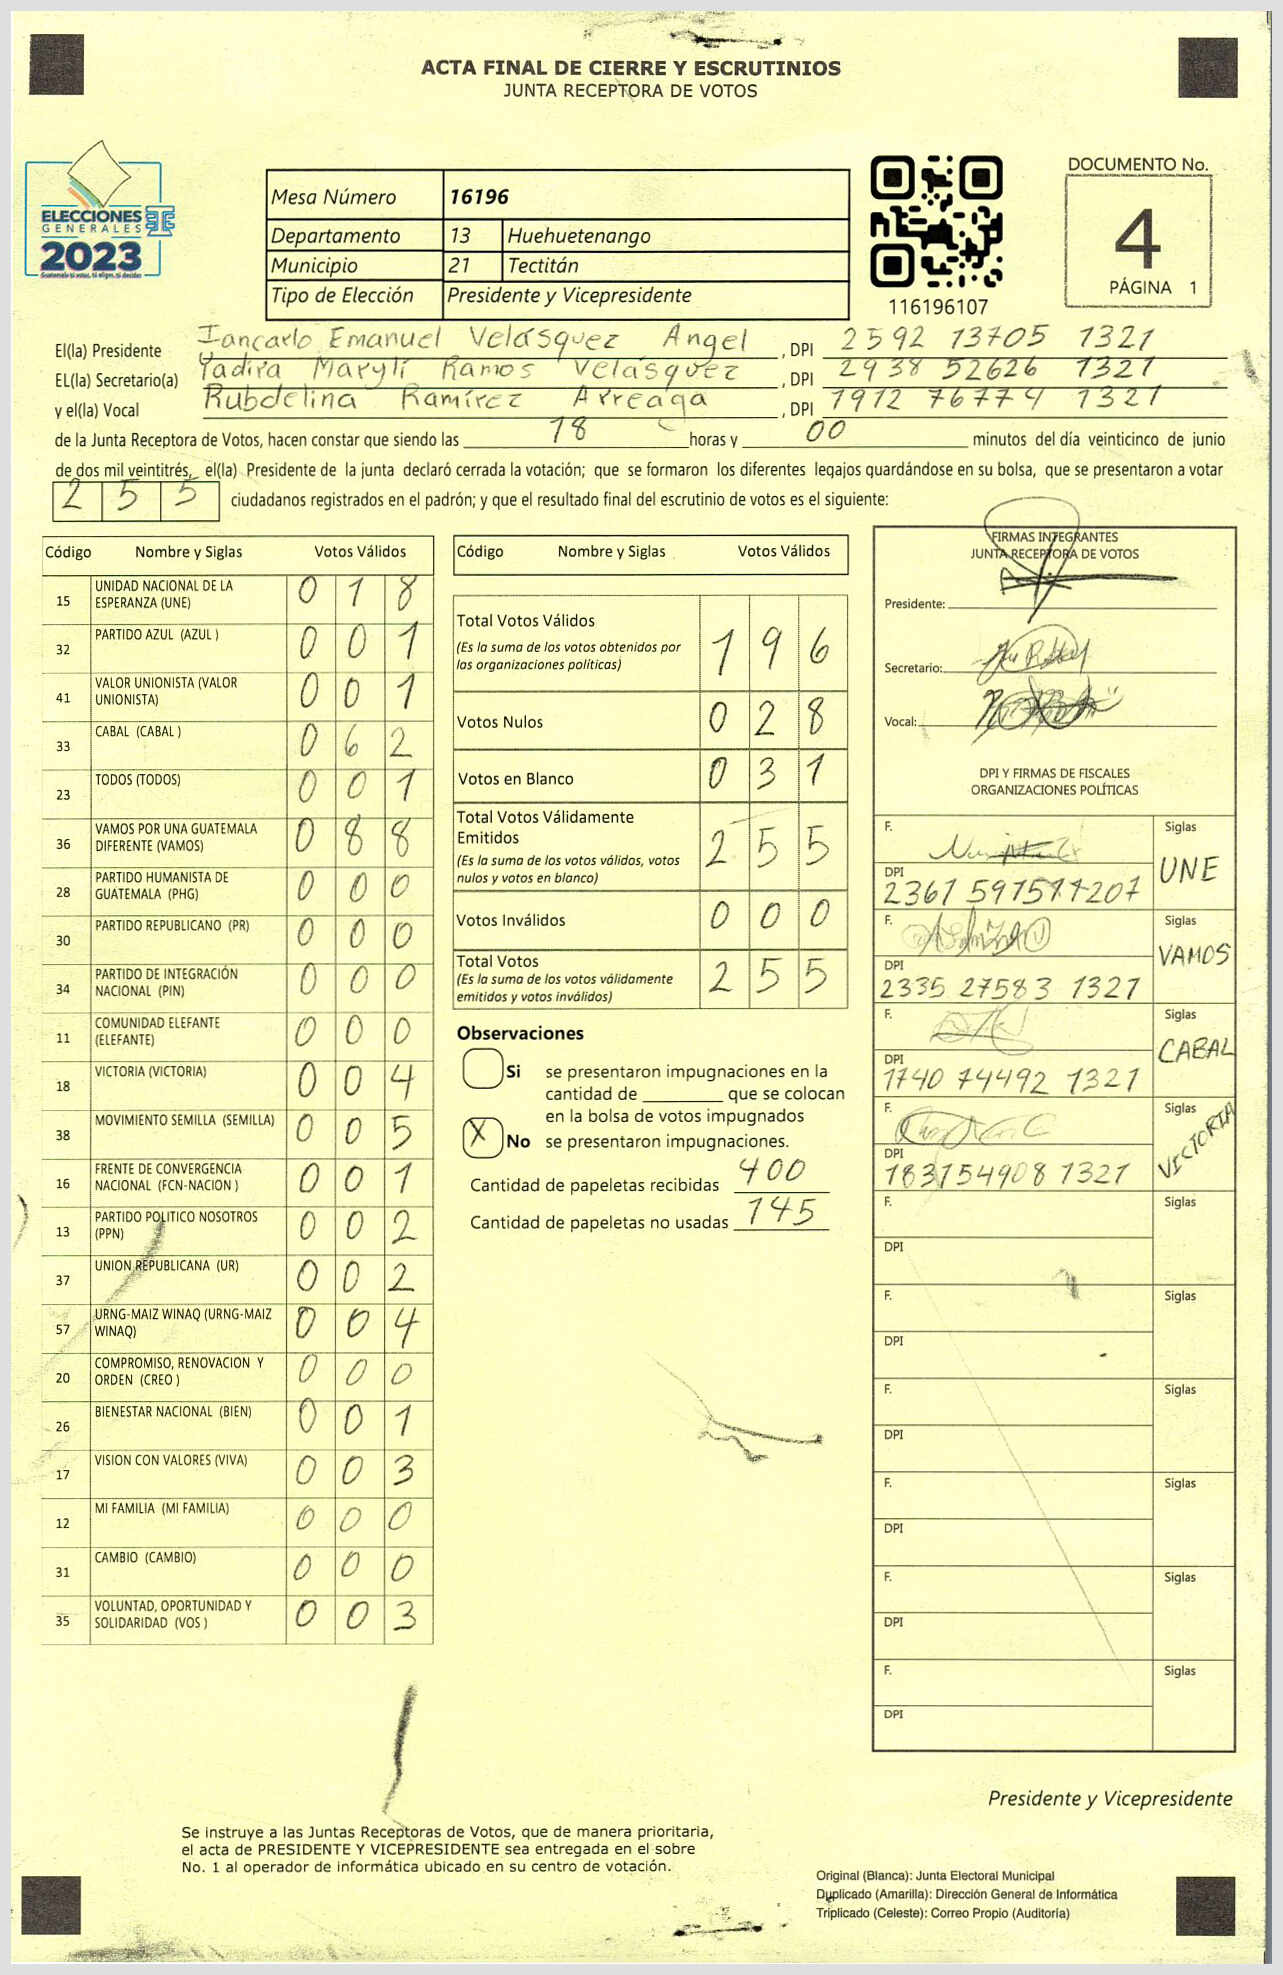 ACTA FINAL DE CIERRE Y ESCRUTINIOS
JUNTA RECEPTORA DE VOTOS
ELECCIONES
GENERALES
2023
Mesa Número 16196
Departamento 13 Huehuetenango
Municipio 21 Tectitán
Tipo de Elección Presidente y Vicepresidente
116196107
DOCUMENTO No.
4
PÁGINA 1
El(la) Presidente Iancarlo Emanuel Velásquez Angel, DPI 2592 13705 1321
EL(la) Secretario(a) Yadira Marylí Ramos Velásquez, DPI 2938 52626 1321
y el(la) Vocal Rubdelina Ramírez Arreaga, DPI 1912 76774 1321
de la Junta Receptora de Votos, hacen constar que siendo las 18 horas y 00 minutos del día veinticinco de junio
de dos mil veintitrés, el(la) Presidente de la junta declaró cerrada la votación; que se formaron los diferentes legajos guardándose en su bolsa, que se presentaron a votar
255 ciudadanos registrados en el padrón; y que el resultado final del escrutinio de votos es el siguiente:
Código Nombre y Siglas Votos Válidos
15 UNIDAD NACIONAL DE LA ESPERANZA (UNE) 0 1 8
32 PARTIDO AZUL (AZUL ) 0 0 1
41 VALOR UNIONISTA (VALOR UNIONISTA) 0 0 1
33 CABAL (CABAL ) 0 6 2
23 TODOS (TODOS) 0 0 1
36 VAMOS POR UNA GUATEMALA DIFERENTE (VAMOS) 0 8 8
28 PARTIDO HUMANISTA DE GUATEMALA (PHG) 0 0 0
30 PARTIDO REPUBLICANO (PR) 0 0 0
34 PARTIDO DE INTEGRACIÓN NACIONAL (PIN) 0 0 0
11 COMUNIDAD ELEFANTE (ELEFANTE) 0 0 0
18 VICTORIA (VICTORIA) 0 0 4
38 MOVIMIENTO SEMILLA (SEMILLA) 0 0 5
16 FRENTE DE CONVERGENCIA NACIONAL (FCN-NACION ) 0 0 1
13 PARTIDO POLITICO NOSOTROS (PPN) 0 0 2
37 UNION REPUBLICANA (UR) 0 0 2
57 URNG-MAIZ WINAQ (URNG-MAIZ WINAQ) 0 0 4
20 COMPROMISO, RENOVACION Y ORDEN (CREO ) 0 0 0
26 BIENESTAR NACIONAL (BIEN) 0 0 1
17 VISION CON VALORES (VIVA) 0 0 3
12 MI FAMILIA (MI FAMILIA) 0 0 0
31 CAMBIO (CAMBIO) 0 0 0
35 VOLUNTAD, OPORTUNIDAD Y SOLIDARIDAD (VOS ) 0 0 3
Código Nombre y Siglas Votos Válidos
Total Votos Válidos 1 9 6
(Es la suma de los votos obtenidos por
las organizaciones políticas)
Votos Nulos 0 2 8
Votos en Blanco 0 3 1
Total Votos Válidamente
Emitidos 2 5 5
(Es la suma de los votos válidos, votos
nulos y votos en blanco)
Votos Inválidos 0 0 0
Total Votos 2 5 5
(Es la suma de los votos válidamente
emitidos y votos inválidos)
Observaciones
Si se presentaron impugnaciones en la
cantidad de ________ que se colocan
en la bolsa de votos impugnados
X No se presentaron impugnaciones.
Cantidad de papeletas recibidas 400
Cantidad de papeletas no usadas 145
FIRMAS INTEGRANTES
JUNTA RECEPTORA DE VOTOS
Presidente:
Secretario:
Vocal:
DPI Y FIRMAS DE FISCALES
ORGANIZACIONES POLÍTICAS
F. Siglas UNE
DPI 2361 59757 1207
F. Siglas VAMOS
DPI 2335 27583 1321
F. Siglas CABAL
DPI 1740 74492 1321
F. Siglas VICTORIA
DPI 1831 54908 1321
F. Siglas
DPI
F. Siglas
DPI
F. Siglas
DPI
F. Siglas
DPI
F. Siglas
DPI
F. Siglas
DPI
Presidente y Vicepresidente
Se instruye a las Juntas Receptoras de Votos, que de manera prioritaria,
el acta de PRESIDENTE Y VICEPRESIDENTE sea entregada en el sobre
No. 1 al operador de informática ubicado en su centro de votación.
Original (Blanca): Junta Electoral Municipal
Duplicado (Amarilla): Dirección General de Informática
Triplicado (Celeste): Correo Propio (Auditoría)